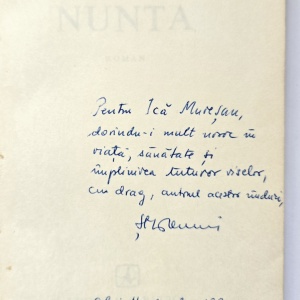 NUNTA
ROMAN
Pentru Ică Mureșan,
dorindu-i mult noroc în
viață, sănătate și
împlinirea tuturor viselor,
cu drag, autorul acestor